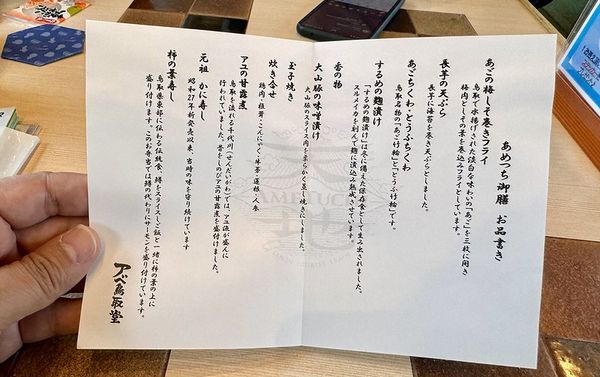 あめつち御膳 お品書き
あごの梅しそ巻きフライ
鳥取で水揚げされた淡白な味わいの「あご」を三枚に開き
梅肉としその葉を巻込みフライとしています。
長芋の天ぷら
長芋に海苔を巻き天ぷらとしました。
あごちくわ・とうふちくわ
鳥取名物の「あご竹輪」と「とうふ竹輪」です。
するめの麹漬け
「するめの麹漬け」は冬に備えた保存食として生み出されました。
スルメイカを刻んで麹に漬込み熟成させています。
香の物
大山豚の味噌漬け
大山豚のスライス肉を柔らかく蒸し焼きにしました。
玉子焼き
炊き合せ
鶏肉・椎茸・こんにゃく・牛蒡・蓮根・人参
アユの甘露煮
鳥取を流れる千代川（せんだいがわ）では、アユ漁が盛んに
行われていました。昔をしのびアユの甘露煮を盛付けました。
元祖 かに寿し
昭和27年新発売以来、当時の味を守り続けています
柿の葉寿し
鳥取県東部に伝わる伝統食、鱒をスライスしご飯と一緒に柿の葉の上に
盛り付けます。このお弁当では鱒の代わりにサーモンを盛り付けています。
アベ鳥取堂
AMETUCHI